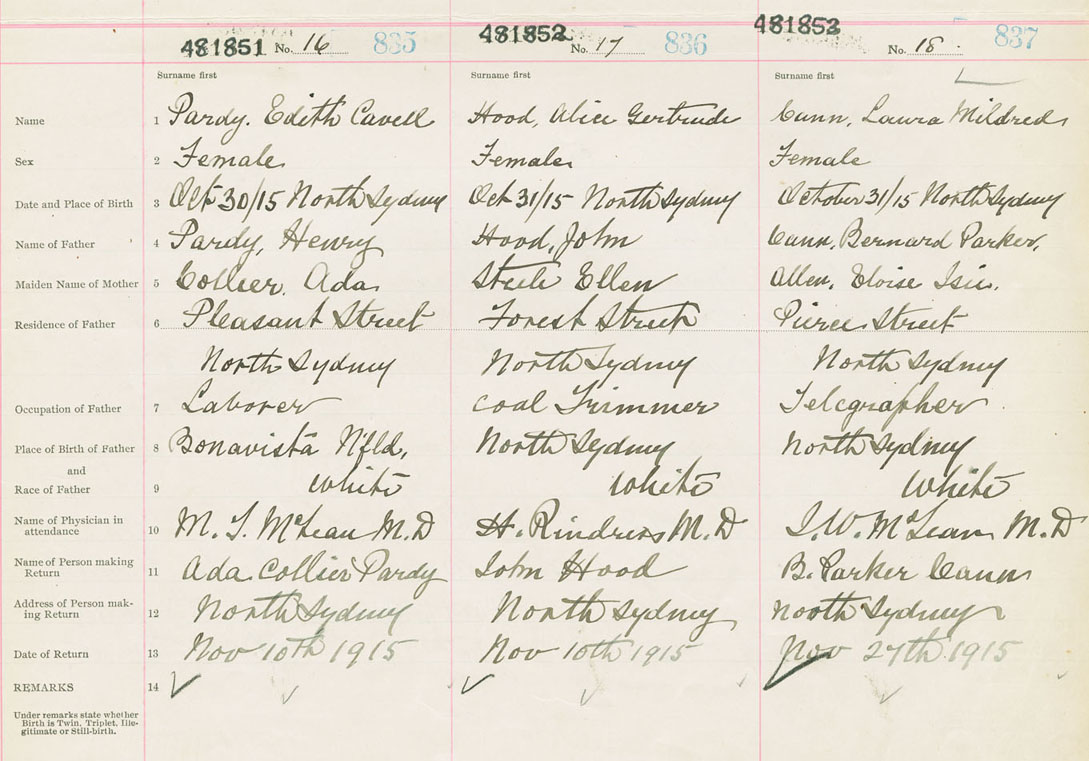 481851 No. 16 835 481852 No. 17 836 481853 No. 18. 837
Surname first Surname first Surname first
Name 1 Pardy. Edith Cavell Hood, Alice Gertrude Cann, Laura Mildred
Sex 2 Female Female Female
Date and Place of Birth 3 Oct 30/15 North Sydney Oct 31/15 North Sydney October 31/15 North Sydney
Name of Father 4 Pardy, Henry Hood, John Cann, Bernard Parker,
Maiden Name of Mother 5 Collier. Ada Steele Ellen Allen, Eloise
Residence of Father 6 Pleasant Street Forest Street Pierce Street
North Sydney North Sydney North Sydney
Occupation of Father 7 Laborer Coal Trimmer Telegrapher
Place of Birth of Father 8 Bonavista Nfld, North Sydney North Sydney
and
Race of Father 9 White White White
Name of Physician in
attendance 10 M. T. McLean M.D H. M.D J. W. McLean M.D
Name of Person making
Return 11 Ada Collier Pardy John Hood B. Parker Cann
Address of Person mak-
ing Return 12 North Sydney North Sydney North Sydney
Date of Return 13 Nov 10th 1915 Nov 10th 1915 Nov 27th 1915
REMARKS 14
Under remarks state whether
Birth is Twin, Triplet, Ille-
gitimate or Still-birth.